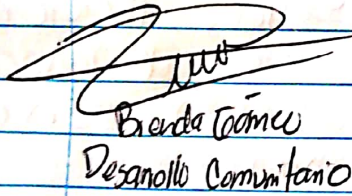 Brenda Gómez
Desarrollo Comunitario